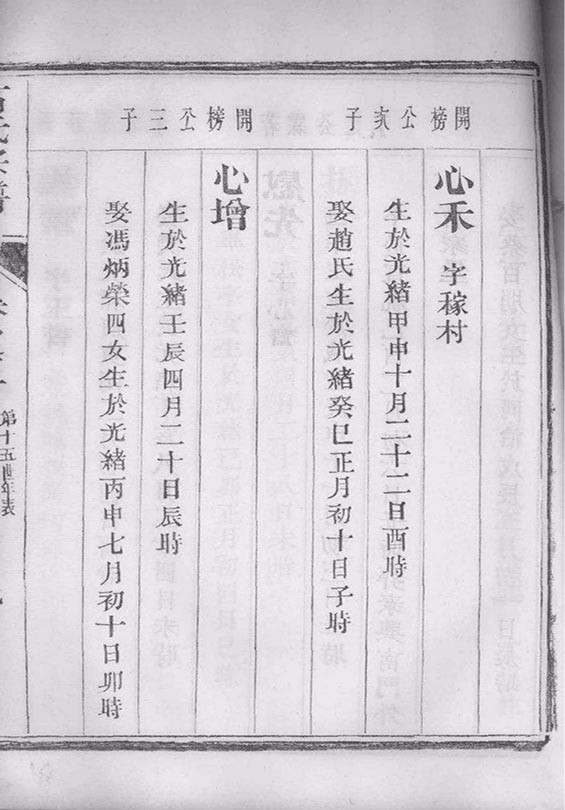 開榜公次子
心禾 字稼村
生於光緒甲申十月二十二日酉時
娶趙氏生於光緒癸巳正月初十日子時
開榜公三子
心增
生於光緒壬辰四月二十日辰時
娶馮炳榮四女生於光緒丙申七月初十日卯時
第十五世年表